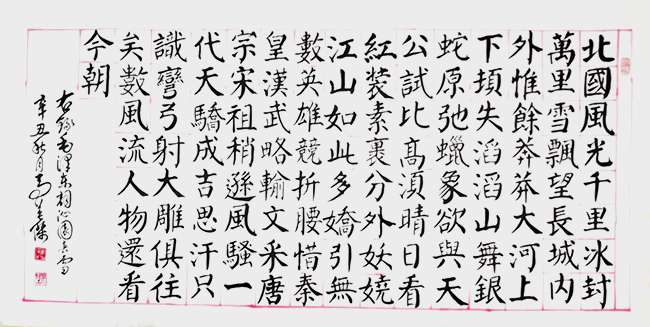 北國風光千里冰封
萬里雪飄望長城内
外惟餘莽莽大河上
下頓失滔滔山舞銀
蛇原弛蠟象欲與天
公試比高須晴日看
紅装素裹分外妖嬈
江山如此多嬌引無
數英雄競折腰惜秦
皇漢武略輸文采唐
宗宋祖稍遜風騷一
代天驕成吉思汗只
識彎弓射大雕俱往
矣數風流人物還看
今朝
右録毛澤東詞沁園春雪
辛丑秋月